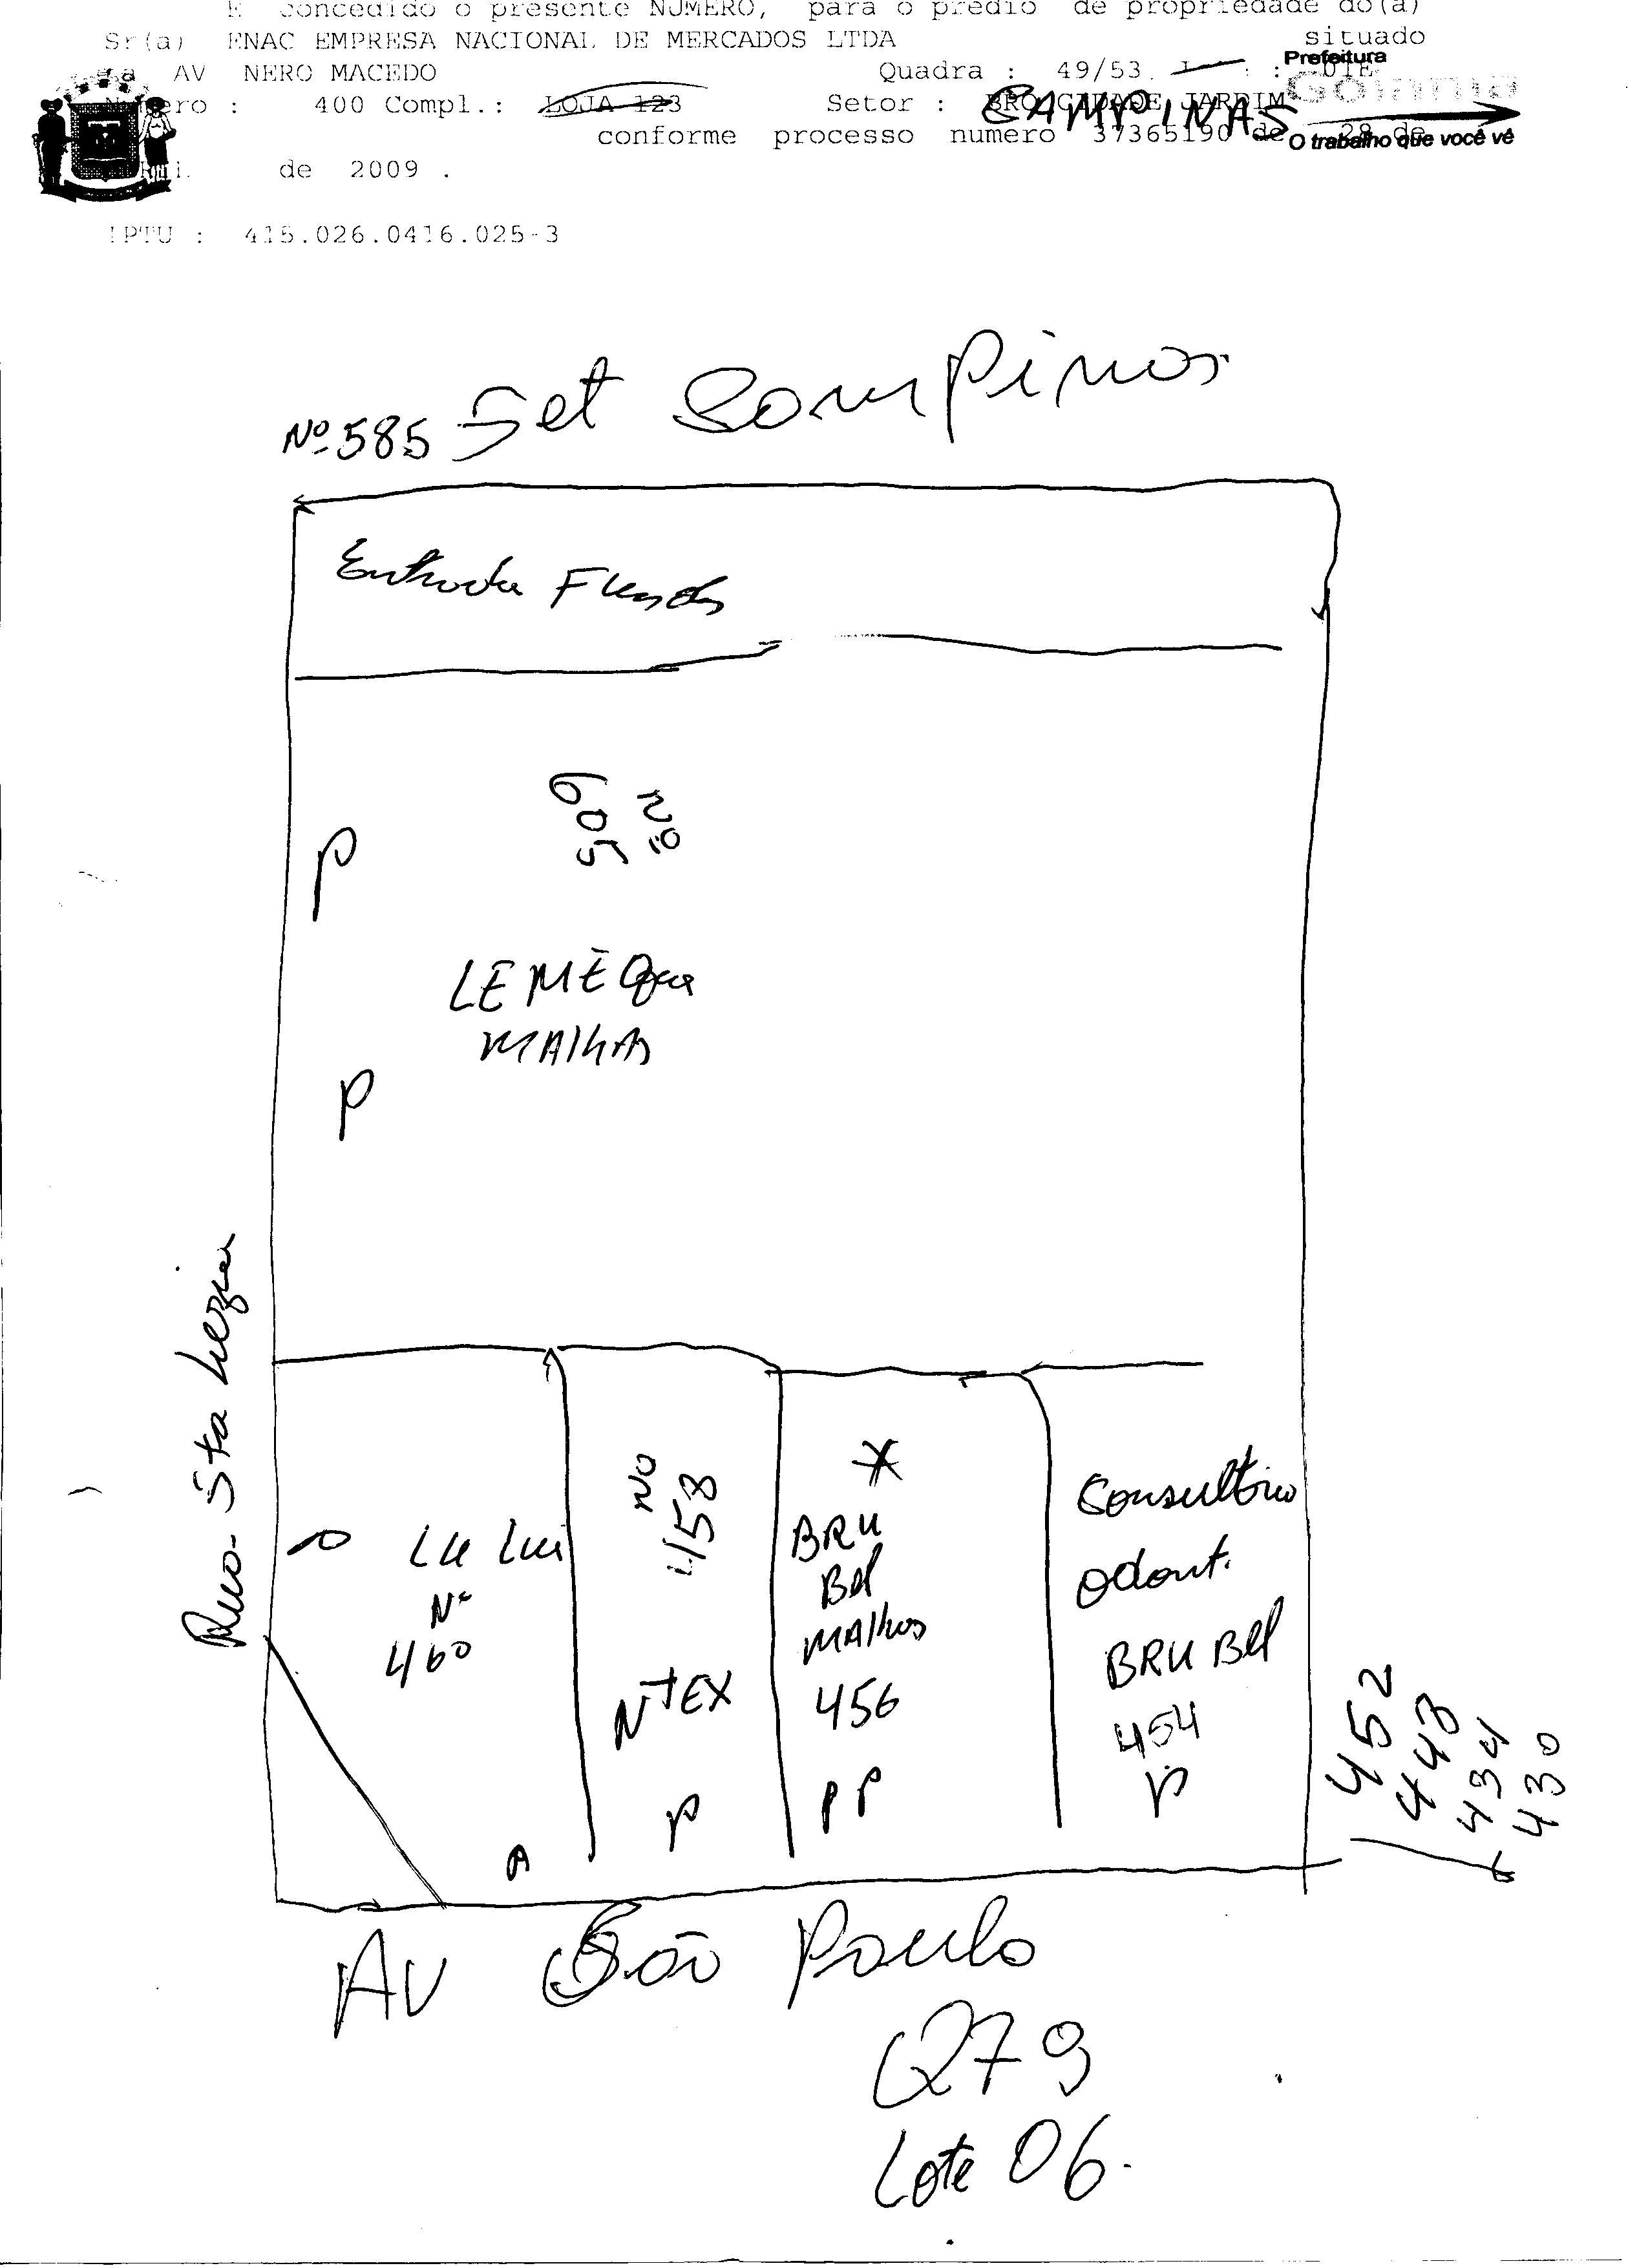 E concedido o presente NUMERO, para o predio de propriedade do(a)
Sr(a) ENAC EMPRESA NACIONAL DE MERCADOS LTDA situado
AV NERO MACEDO Quadra : 49/53
Prefeitura
400 Compl.: LOJA 123 Setor : BRO CIDADE JARDIM
CAMPINAS
conforme processo numero 37365190 de 28 de
O trabalho que você vê
de 2009 .
IPTU : 415.026.0416.025-3
Nº 585 Set Campinas
Entrada Fundos
Nº
509
P
LEMÊQue
MALHAS
P
Rua Sta Luzia
Lu Lui
Nº
460
Nº
458
NTEX
P
*
BRU
Bel
MALHAS
456
PP
Consultório
Odont.
BRU Bel
454
P
452
448
434
430
AV São Paulo
Q79
Lote 06.